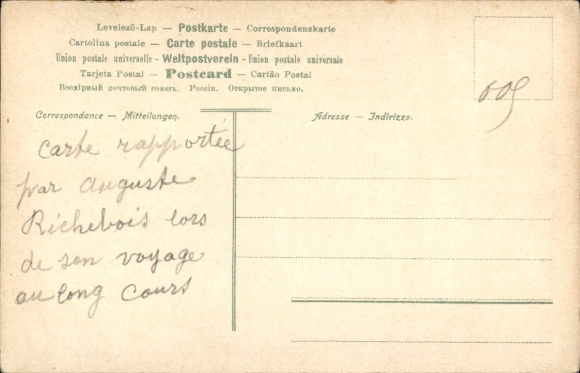 Levelező-Lap — Postkarte — Correspondenzkarte
Cartolina postale — Carte postale — Briefkaart
Union postale universelle - Weltpostverein - Union postale universale
Tarjeta Postal — Postcard — Cartão Postal
Всемірный почтовый союзъ. Россія. Открытое письмо.
Correspondance — Mitteilungen.
Adresse — Indirizzo.
carte rapportée
par Auguste
Richebois lors
de son voyage
au long cours